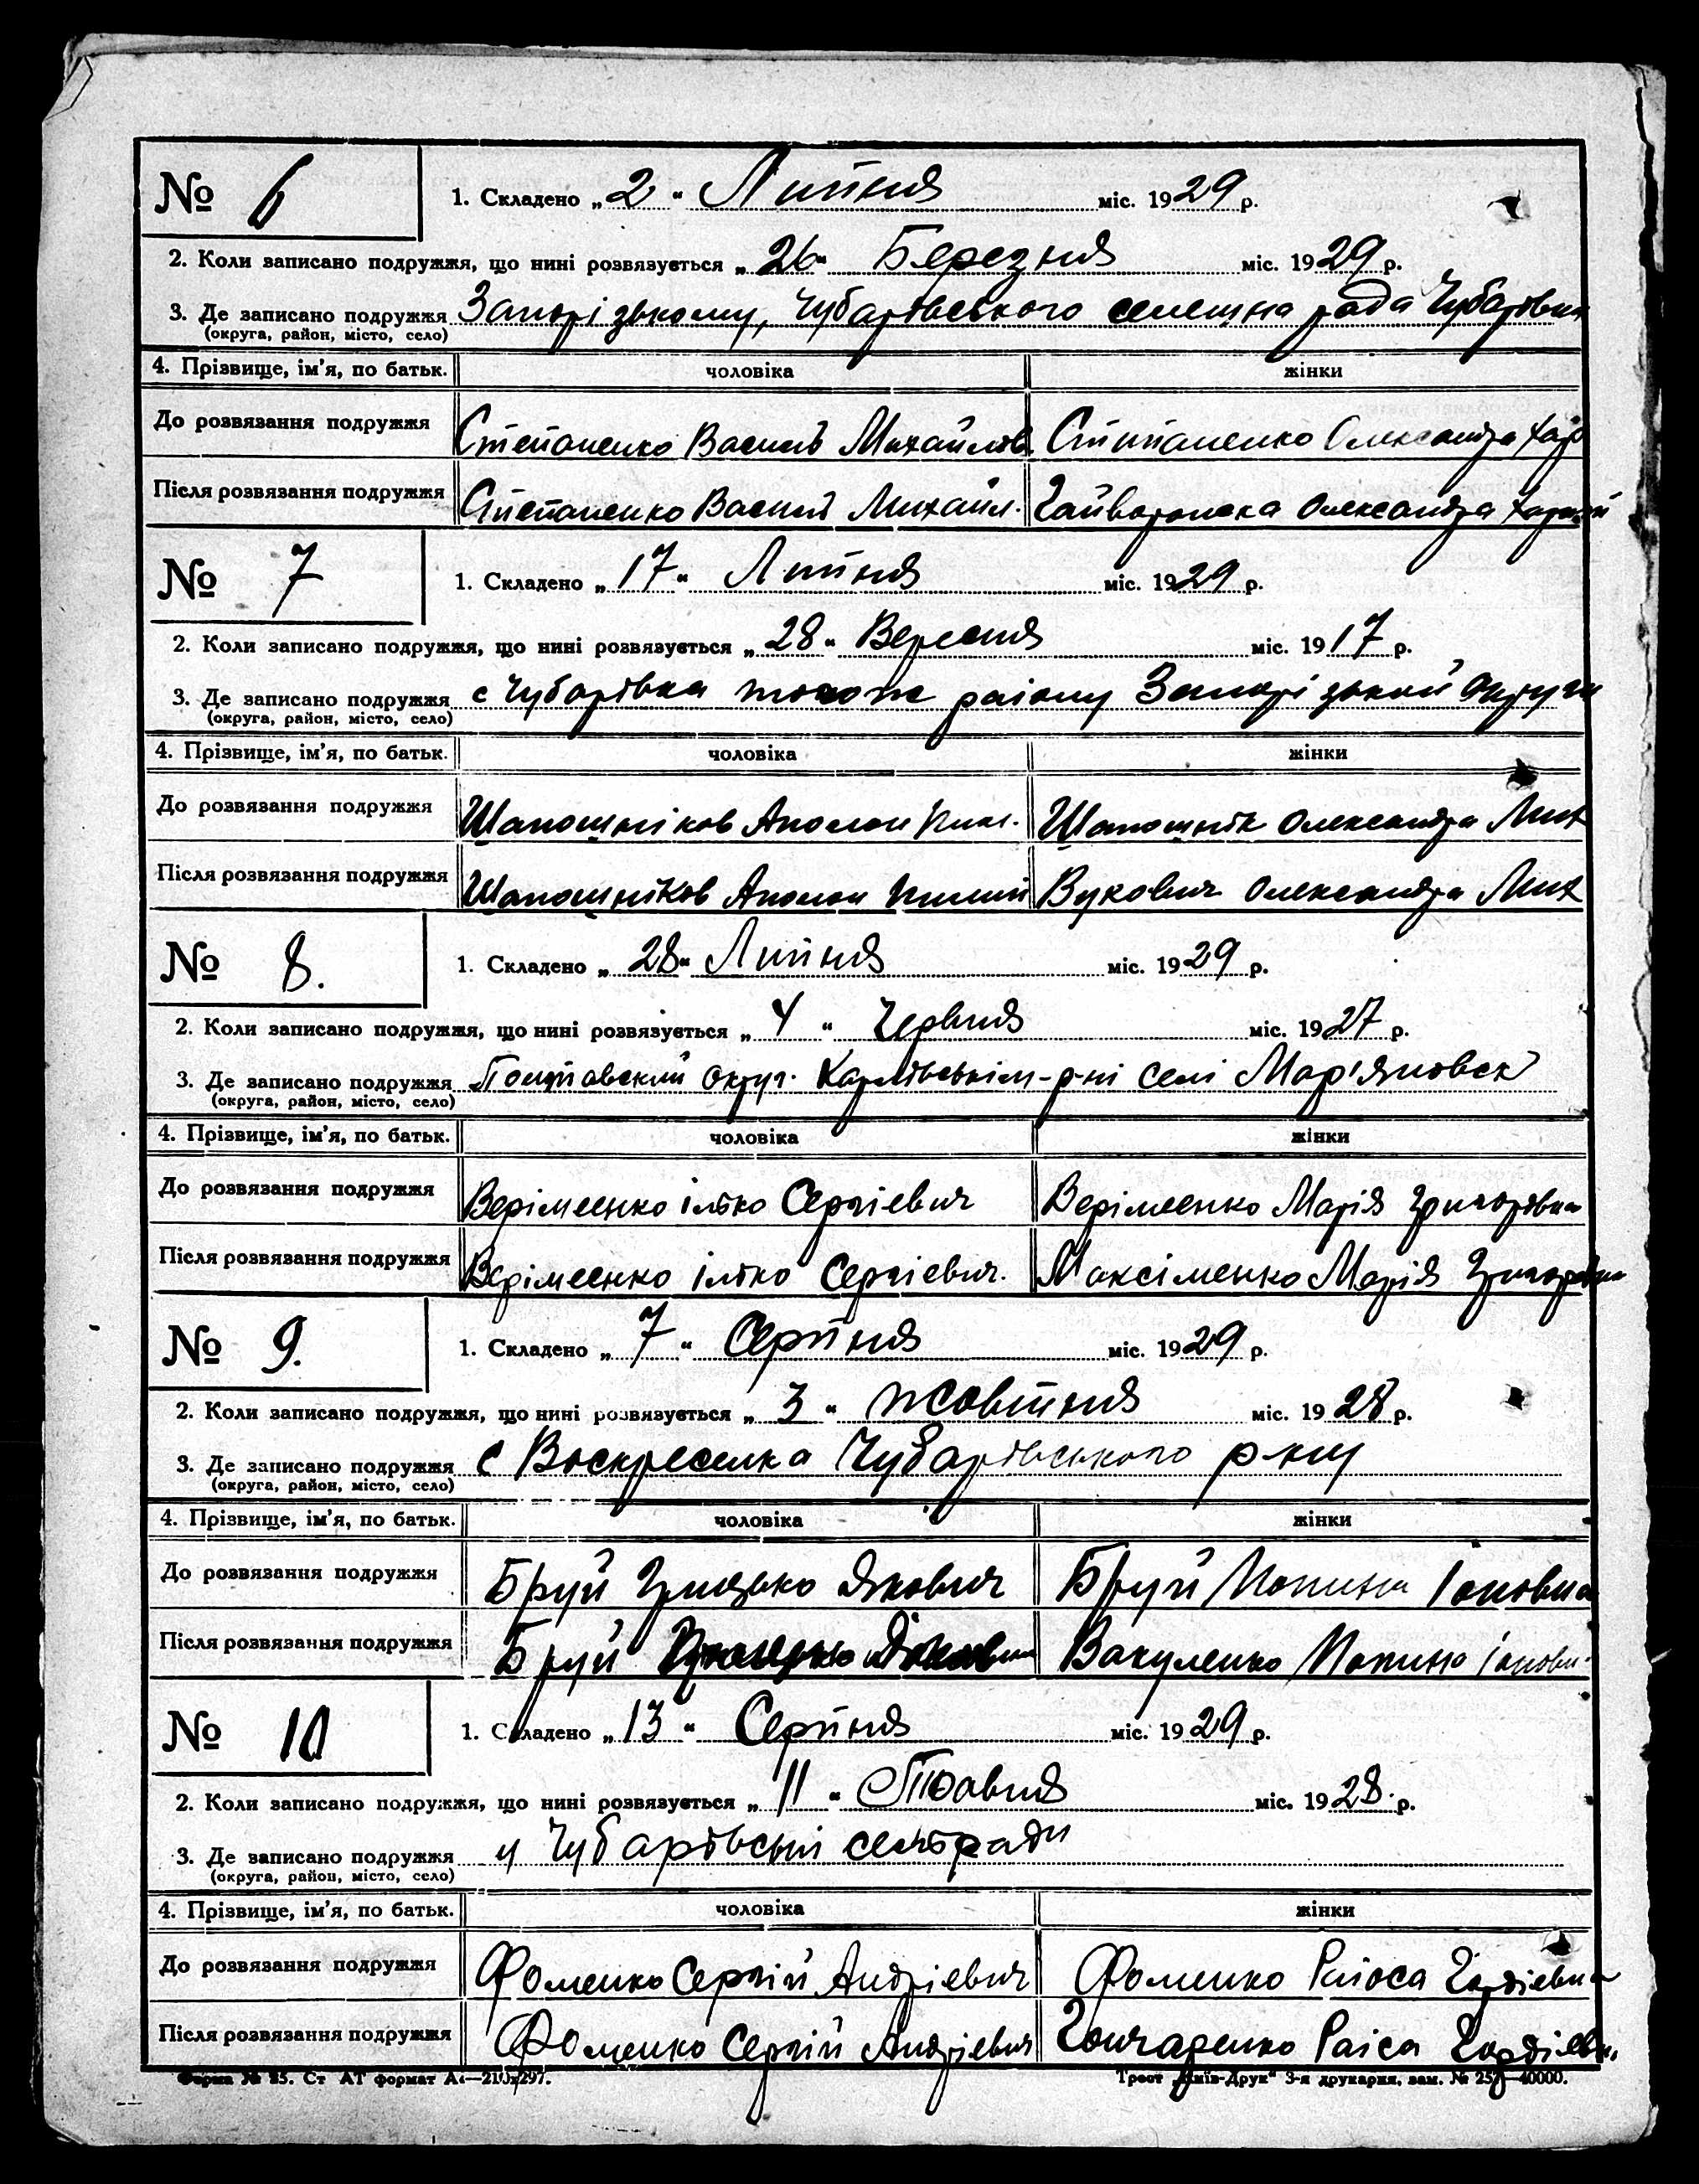 № 6
1. Складено „2“ Липня міс. 1929 р.
2. Коли записано подружжя, що нині розвязується „26“ Березня міс. 1929 р.
3. Де записано подружжя Запорізькому, Чубарівського селещна рада Чубарівка
(округа, район, місто, село)
4. Прізвище, ім'я, по батьк. чоловіка жінки
До розвязання подружжя Степаненко Василь Михайлов Степаненко Олександра Хар
Після розвязання подружжя Степаненко Василь Михайл. Гайворонска Олександра
№ 7
1. Складено „17“ Липня міс. 1929 р.
2. Коли записано подружжя, що нині розвязується „28“ Вересня міс. 1917 р.
3. Де записано подружжя с Чубарівка того ж раіону Запорізькой Округи
(округа, район, місто, село)
4. Прізвище, ім'я, по батьк. чоловіка жінки
До розвязання подружжя Шапошніков Аполон Шапошнік Олександра Мих
Після розвязання подружжя Шапошніков Аполон Вукович Олександра Мих
№ 8.
1. Складено „28“ Липня міс. 1929 р.
2. Коли записано подружжя, що нині розвязується „4“ Червня міс. 1927 р.
3. Де записано подружжя Полтавский округ. Карлівськім р-ні селі Мар'яновск
(округа, район, місто, село)
4. Прізвище, ім'я, по батьк. чоловіка жінки
До розвязання подружжя Верімеенко ілько Сергіевич Верімеенко Марія Григорівна
Після розвязання подружжя Верімеенко ілько Сергіевич. Максіменко Марія Григорівна
№ 9.
1. Складено „7“ Серпня міс. 1929 р.
2. Коли записано подружжя, що нині розвязується „3“ Жовтня міс. 1928 р.
3. Де записано подружжя с Воскресенка Чубарівського р-ну
(округа, район, місто, село)
4. Прізвище, ім'я, по батьк. чоловіка жінки
До розвязання подружжя Бруй Грицько Якович Бруй Мотина Іановна
Після розвязання подружжя Бруй Грицько Якович Вакуленко
№ 10
1. Складено „13“ Серпня міс. 1929 р.
2. Коли записано подружжя, що нині розвязується „11“ Травня міс. 1928. р.
3. Де записано подружжя у Чубарівські сельради
(округа, район, місто, село)
4. Прізвище, ім'я, по батьк. чоловіка жінки
До розвязання подружжя Фоменко Сергій Андріевич Фоменко Раіоса Гордіевна
Після розвязання подружжя Фоменко Сергій Андріевич Гончаренко Раіса Гордіевн.
Форма № 25. Ст АТ формат А4—210х297. Трест „Київ-Друк“ 3-я друкарня, зам. № 257—40000.